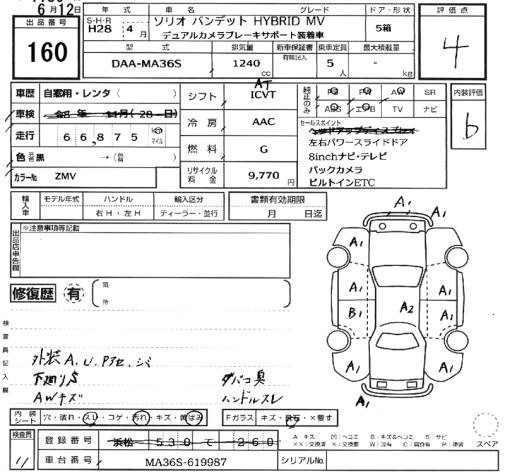 6月12日
出品番号
160
年式 車名 グレード ドア・形状
S・H・R H28 4月 ソリオ バンデット HYBRID MV デュアルカメラブレーキサポート装着車 5箱
型式 排気量 新車保証書 乗車定員 最大積載量
有無記入
DAA-MA36S 1240cc 5人 - kg
評価点
4
車歴 自家用・レンタ( )
車検 年 月(28日)
走行 66,875 km マイル
色 黒 →( )
カラーNo ZMV
シフト AT ICVT
冷房 AAC
燃料 G
リサイクル料金 9,770円
純正のみ PS PW AW SR
ABS エアB TV ナビ
内装評価
b
セールスポイント
ヘッドアップディスプレイ
左右パワースライドドア
8inchナビ・テレビ
バックカメラ
ビルトインETC
輸入車 モデル年式 ハンドル 輸入区分
右H・左H ディーラー・並行
書類有効期限
月 日迄
出品店申告欄
※注意事項等記載
修復歴 有
箇所
検査員記入欄
外装 A, U, Pアセ, シミ
下廻りS
AWキズ
タバコ臭
ハンドルスレ
A1
A1
A1
A1
A1
B1
A2
A1
A1
A1
内装シート 穴・破れ・スレ・コゲ・汚れ・キズ・黄ばみ
Fガラス キズ・飛石・×要す
検査員
11
登録番号 浜松 530 て 260
車台番号 MA36S-619987
シリアルNo.
スペア